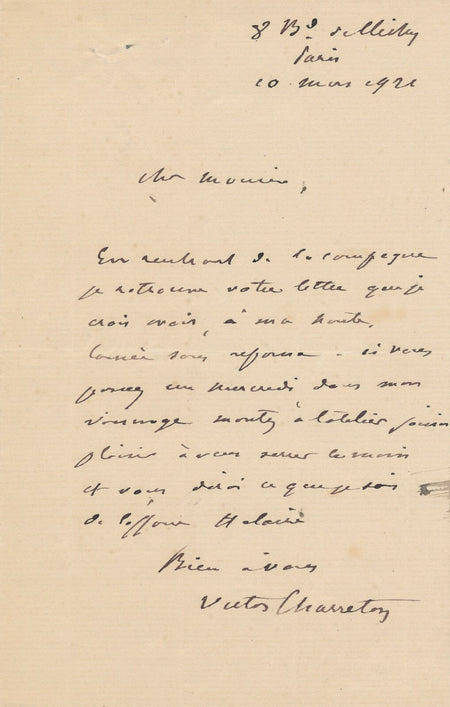 8 Bd de Clichy
Paris
10 mars 1921
cher monsieur,
En rentrant de la campagne
je retrouve votre lettre que je
crois avoir, à ma honte,
laissée sans reponse. si vous
passez un mercredi dans mon
voisinage montez à l'atelier j'aurai
plaisir à vous serrer la main
et vous dirai ce que je sais
de l'affaire
Bien à vous
Victor Charreton